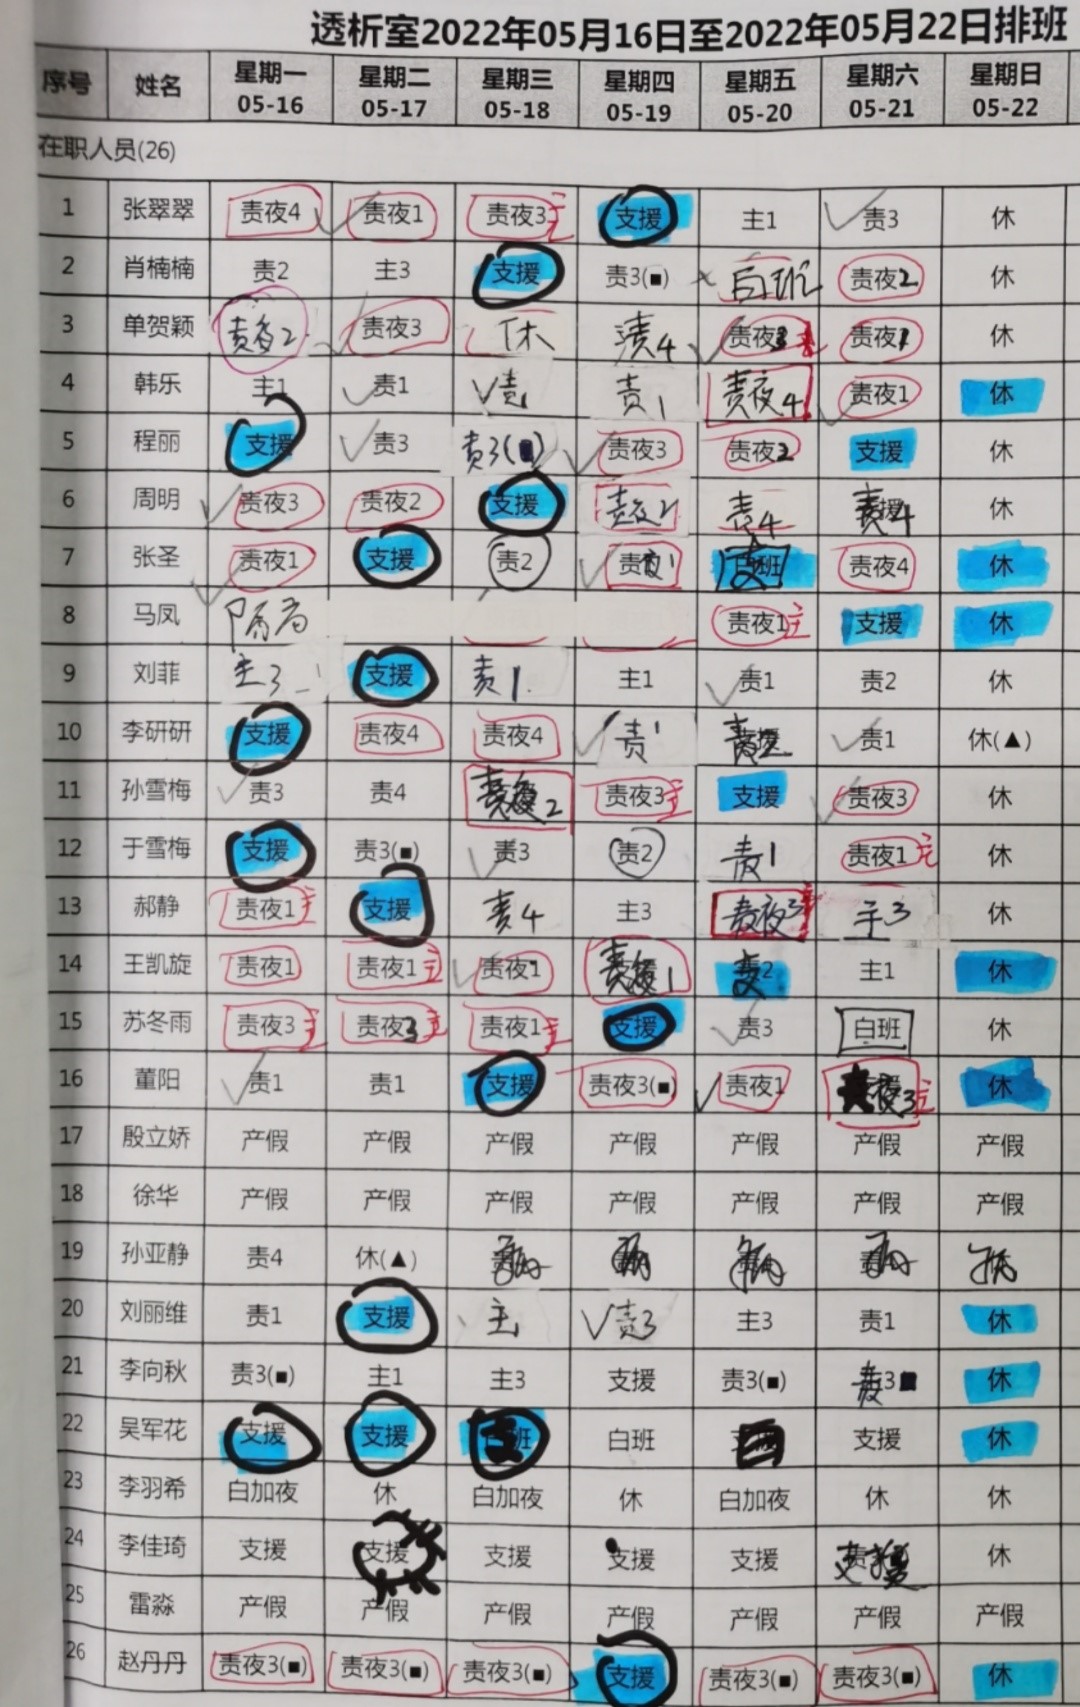 透析室2022年05月16日至2022年05月22日排班
序号 姓名 星期一 05-16 星期二 05-17 星期三 05-18 星期四 05-19 星期五 05-20 星期六 05-21 星期日 05-22
在职人员(26)
1 张翠翠 责夜4 责夜1 责夜3主 支援 主1 责3 休
2 肖楠楠 责2 主3 支援 责3(■) 白班 责夜2 休
3 单贺颖 责夜2 责夜3 休 责4 责夜3主 责夜1 休
4 韩乐 主1 责1 责1 责1 责夜4 责夜1 休
5 程丽 支援 责3 责3(■) 责夜3 责夜2 支援 休
6 周明 责夜3 责夜2 支援 责夜2 责4 责4 休
7 张圣 责夜1 支援 责2 责夜1 支 责夜4 休
8 马凤 隔离 责夜1主 支援 休
9 刘菲 主3 支援 责1 主1 责1 责2 休
10 李研研 支援 责夜4 责夜4 责1 责2 责1 休(▲)
11 孙雪梅 责3 责4 责夜2 责夜3主 支援 责夜3 休
12 于雪梅 支援 责3(■) 责3 责2 责1 责夜1主 休
13 郝静 责夜1主 支援 责4 主3 责夜3主 主3 休
14 王凯旋 责夜1 责夜1主 责夜1 责夜1 支 主1 休
15 苏冬雨 责夜3主 责夜3主 责夜1主 支援 责3 白班 休
16 董阳 责1 责1 支援 责夜3(■) 责夜1 夜3主 休
17 殷立娇 产假 产假 产假 产假 产假 产假 产假
18 徐华 产假 产假 产假 产假 产假 产假 产假
19 孙亚静 责4 休(▲)
20 刘丽维 责1 支援 主1 责3 主3 责1 休
21 李向秋 责3(■) 主1 主3 支援 责3(■) 责3■ 休
22 吴军花 支援 支援 班 白班 支援 休
23 李羽希 白加夜 休 白加夜 休 白加夜 休 休
24 李佳琦 支援 支援 支援 支援 支援 支援 休
25 雷淼 产假 产假 产假 产假 产假 产假 产假
26 赵丹丹 责夜3(■) 责夜3(■) 责夜3(■) 支援 责夜3(■) 责夜3(■) 休